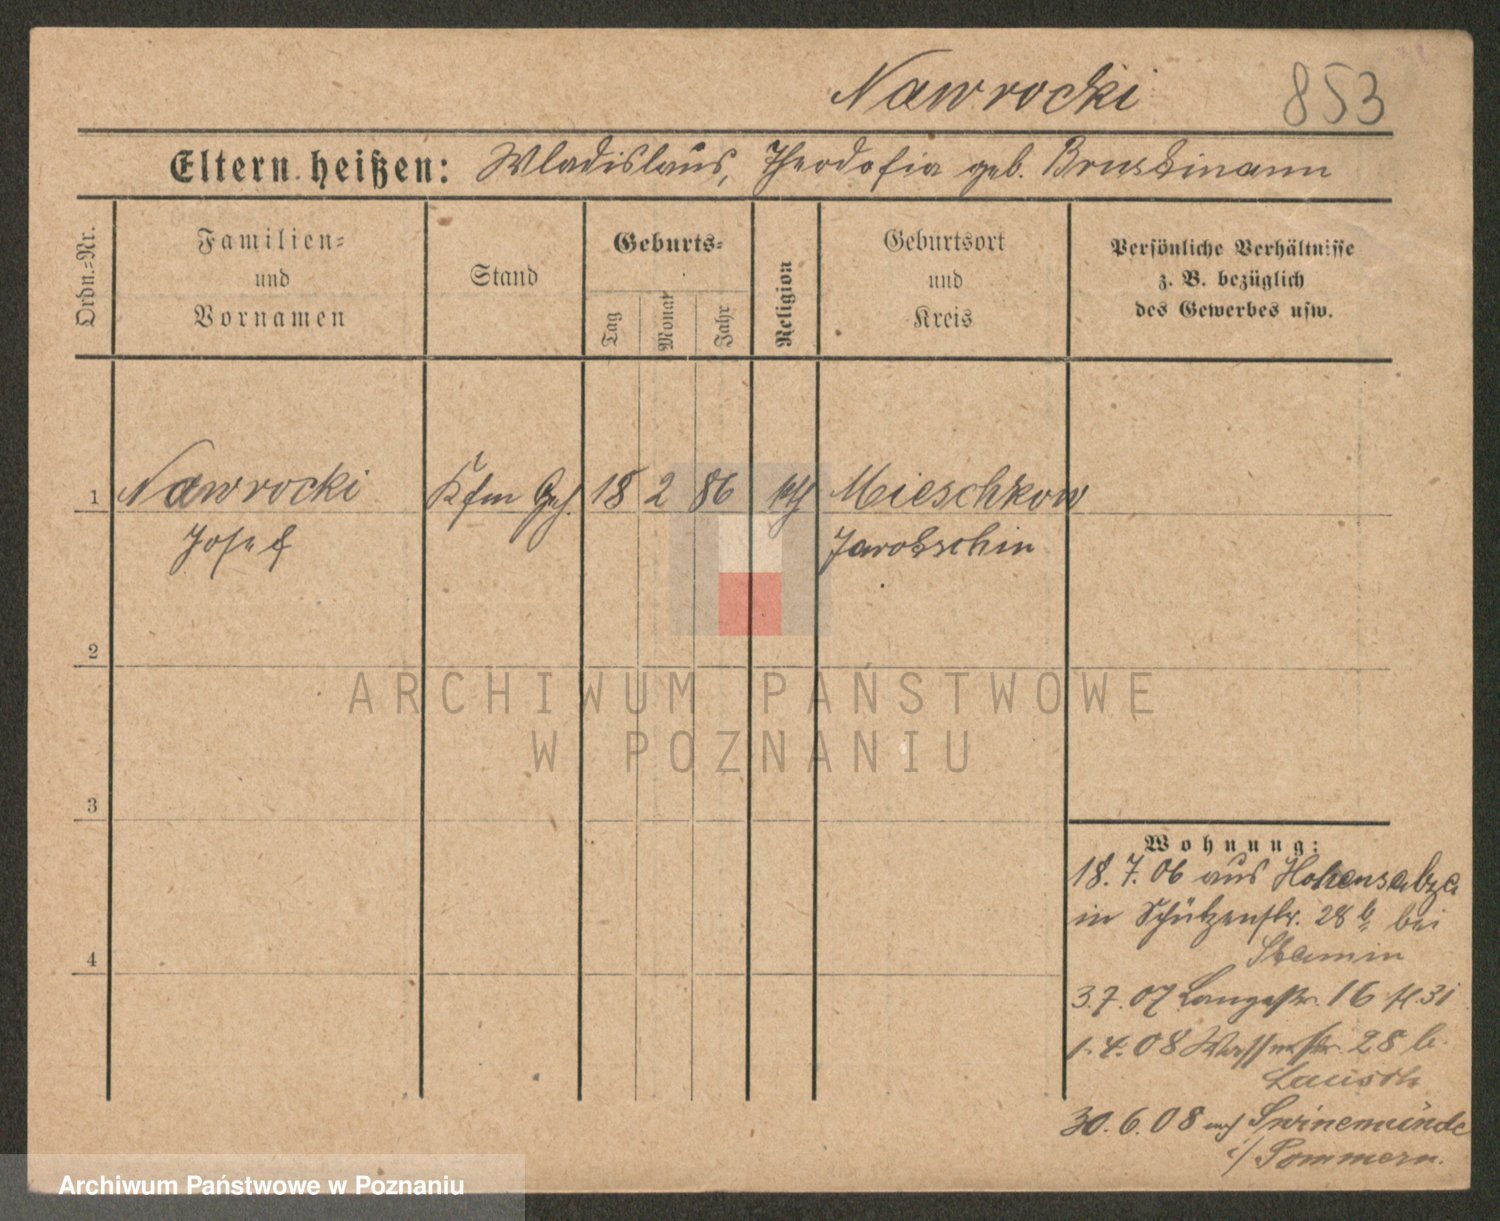 Nawrocki 853
Eltern heißen: Wladislaus, Theodofia geb. Bruskinann
Ordn.-Nr.
Familien-
und
Vornamen
Stand
Geburts-
Tag
Monat
Jahr
Religion
Geburtsort
und
Kreis
Persönliche Verhältnisse
z. B. bezüglich
des Gewerbes usw.
1 Nawrocki Kfm Geh. 18 2 86 Mieschkow
Josef Jarotschin
2
ARCHIWUM PAŃSTWOWE
W POZNANIU
3
4
Wohnung:
18.7.06 aus Hohensalza
in Schützenstr. 28 b bei
Stamin
3.7.07 Langestr. 16 31
1.4.08 Wasserstr. 28 b.
Lausch
30.6.08 nach Swinemünde
i/ Pommern.
Archiwum Państwowe w Poznaniu